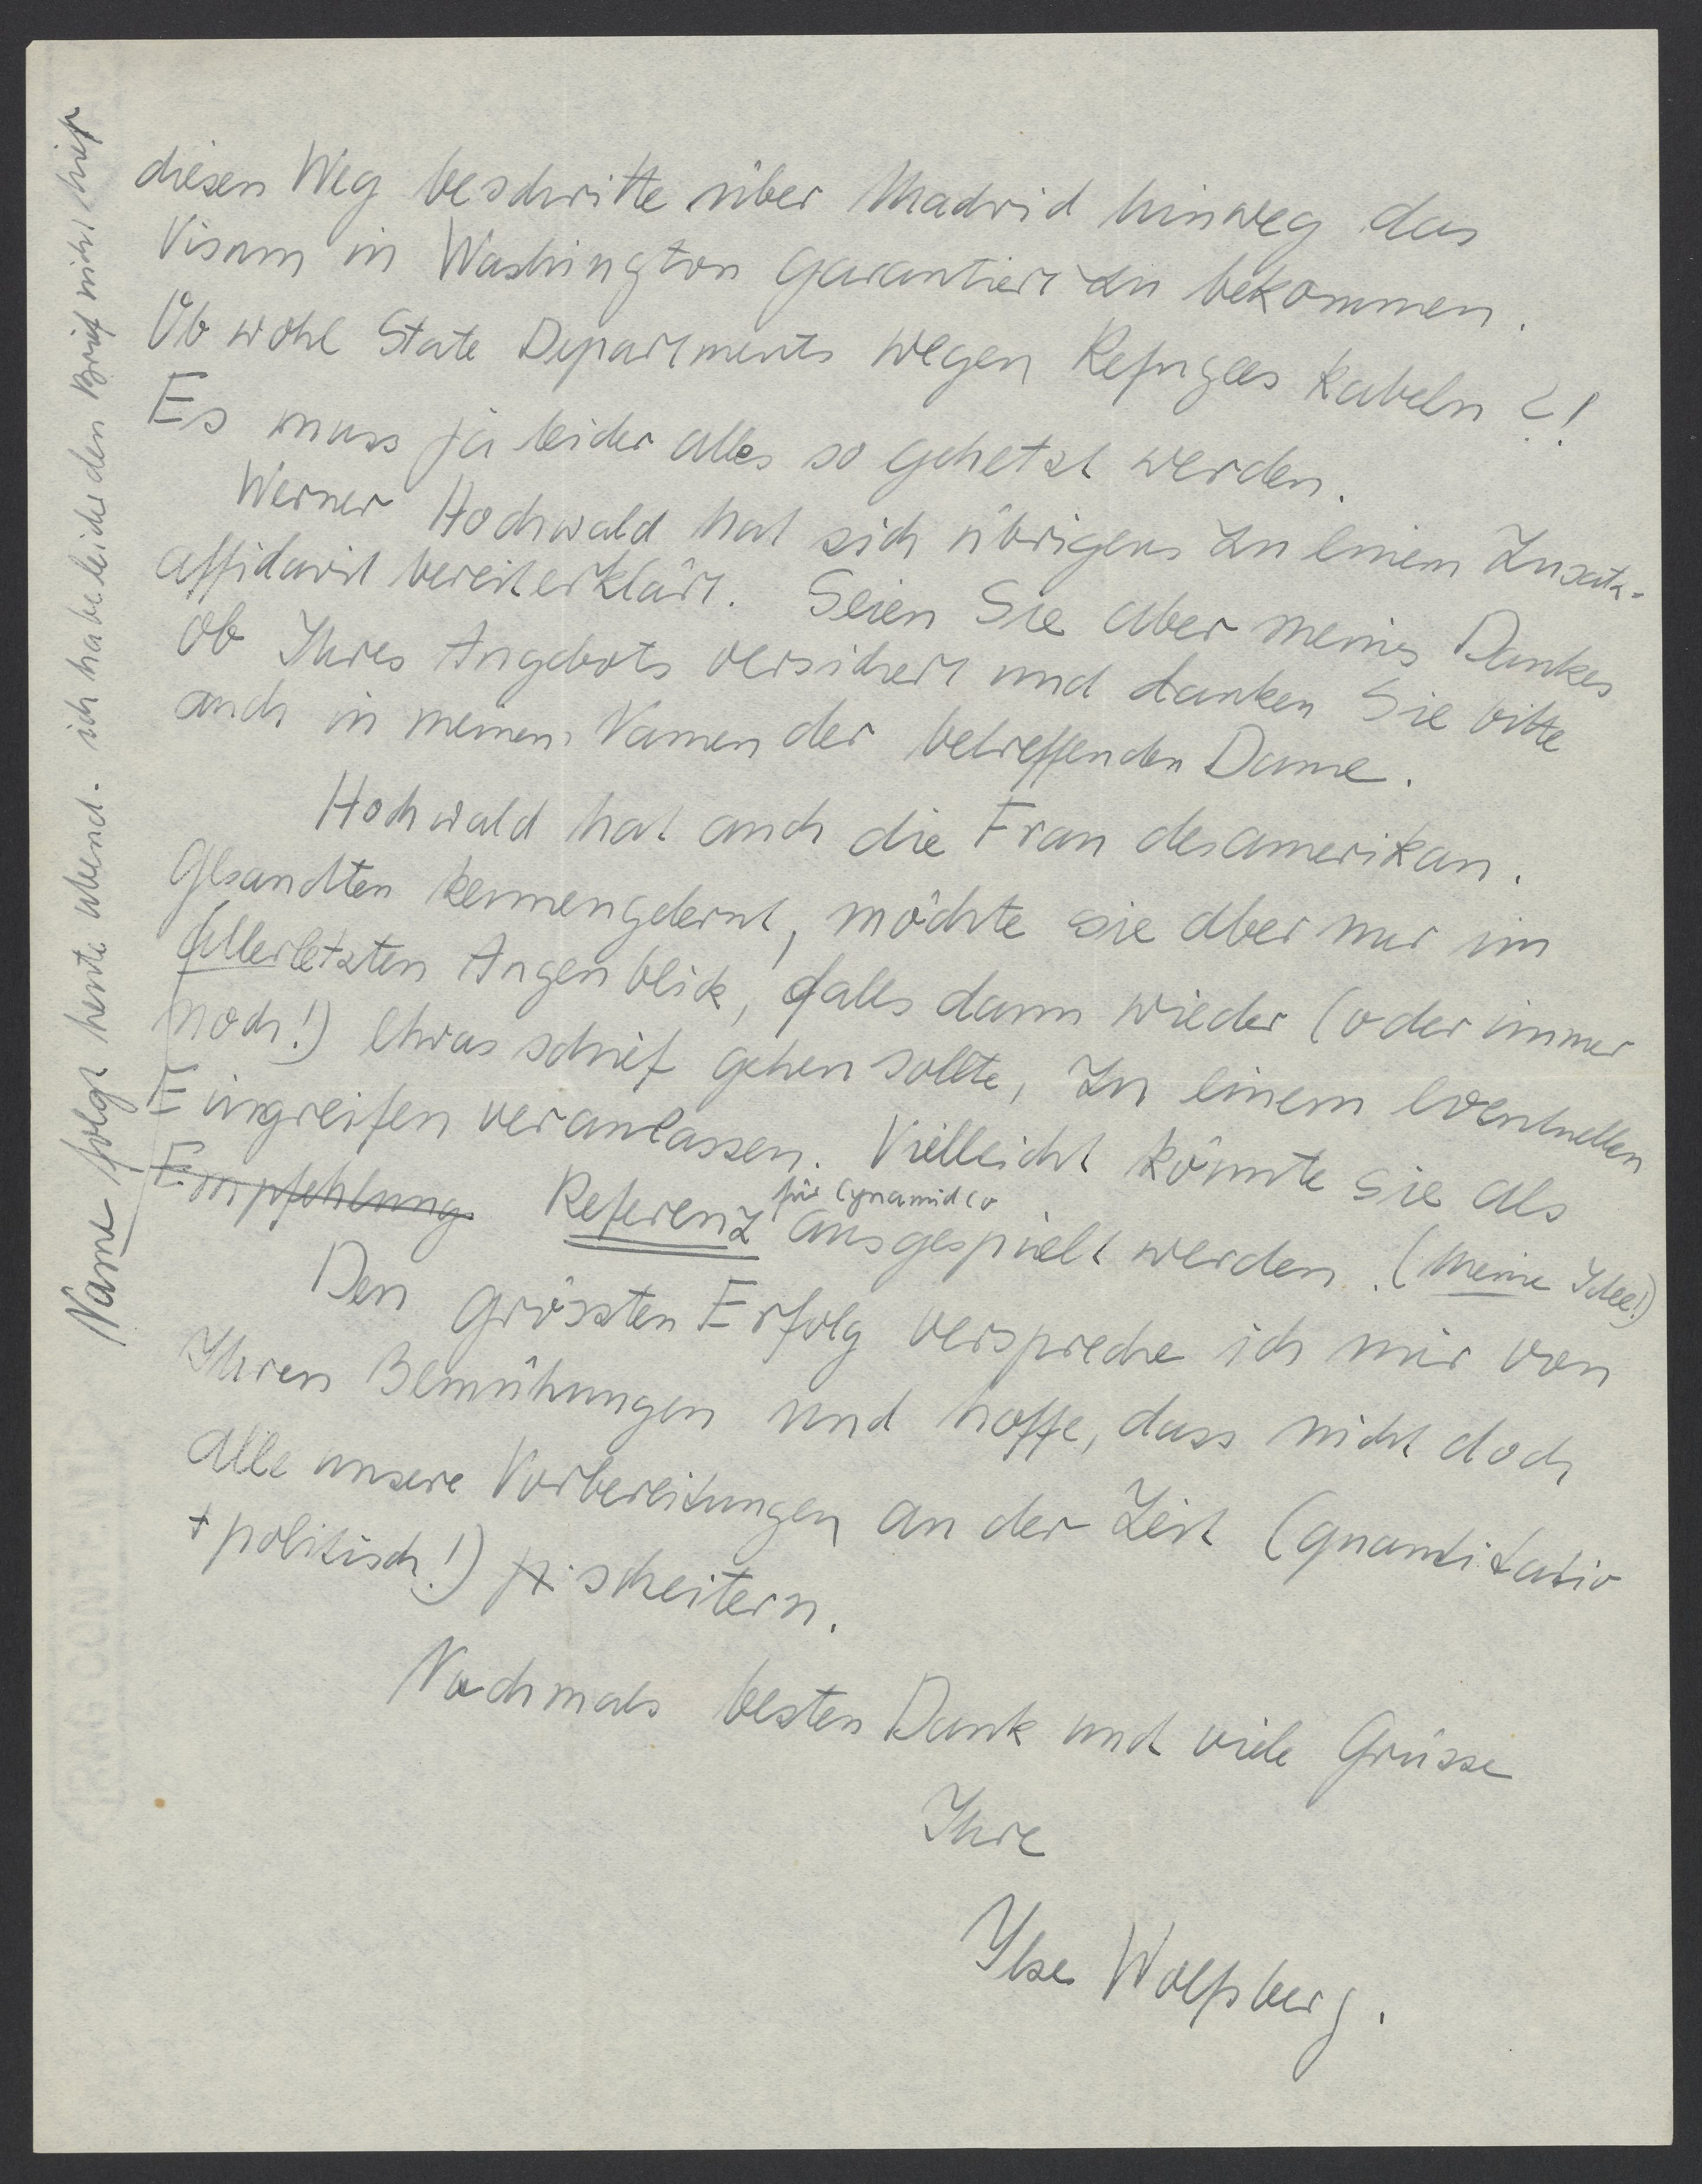 diesen Weg beschritte über Madrid hinweg das
Visum in Washington garantiert zu bekommen.
Ob wohl State Departments wegen Refugees kabeln ?!
Es muss ja leider alles so gehetzt werden.
Werner Hochwald hat sich übrigens zu einem Zusatz-
affidavit bereiterklärt. Seien Sie aber meines Dankes
ob Ihres Angebots versichert und danken Sie bitte
auch in meinem Namen der betreffenden Dame.
Hochwald hat auch die Frau des amerikan.
Gesandten kennengelernt, möchte sie aber nur im
allerletzten Augenblick, falls dann wieder (oder immer
noch!) etwas schief gehen sollte, zu einem eventuellen
Eingreifen veranlassen. Vielleicht könnte sie als
Empfehlung Referenz für Cynamid Co ausgespielt werden. (meine Idee!)
Den grössten Erfolg verspreche ich mir von
Ihren Bemühungen und hoffe, dass nicht doch
alle unsere Vorbereitungen an der Zeit (quantitativ
+ politisch!) scheitern.
Nochmals besten Dank und viele Grüsse
Ihre
Ilse Wolfsberg.
Name folgt heute abend. ich habe leider den Brief nicht hier